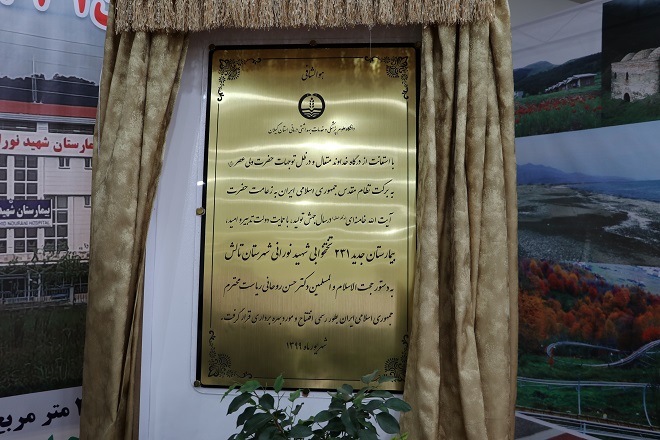 هو الشافی
دانشگاه علوم پزشکی و خدمات بهداشتی درمانی استان گیلان
با استعانت از درگاه خداوند متعال و در ظل توجهات حضرت ولی عصر
به برکت نظام مقدس جمهوری اسلامی ایران به زعامت حضرت
آیت الله خامنه‌ای در سال جهش تولید، با حمایت دولت تدبیر و امید،
بیمارستان جدید ۲۳۱ تختخوابی شهید نورانی شهرستان تالش
به دستور حجت الاسلام و المسلمین دکتر حسن روحانی ریاست محترم
جمهوری اسلامی ایران بطور رسمی افتتاح و مورد بهره برداری قرار گرفت.
شهریور ماه ۱۳۹۹
مارستان شهید نورا
بیمارستان شهید
متر مربع